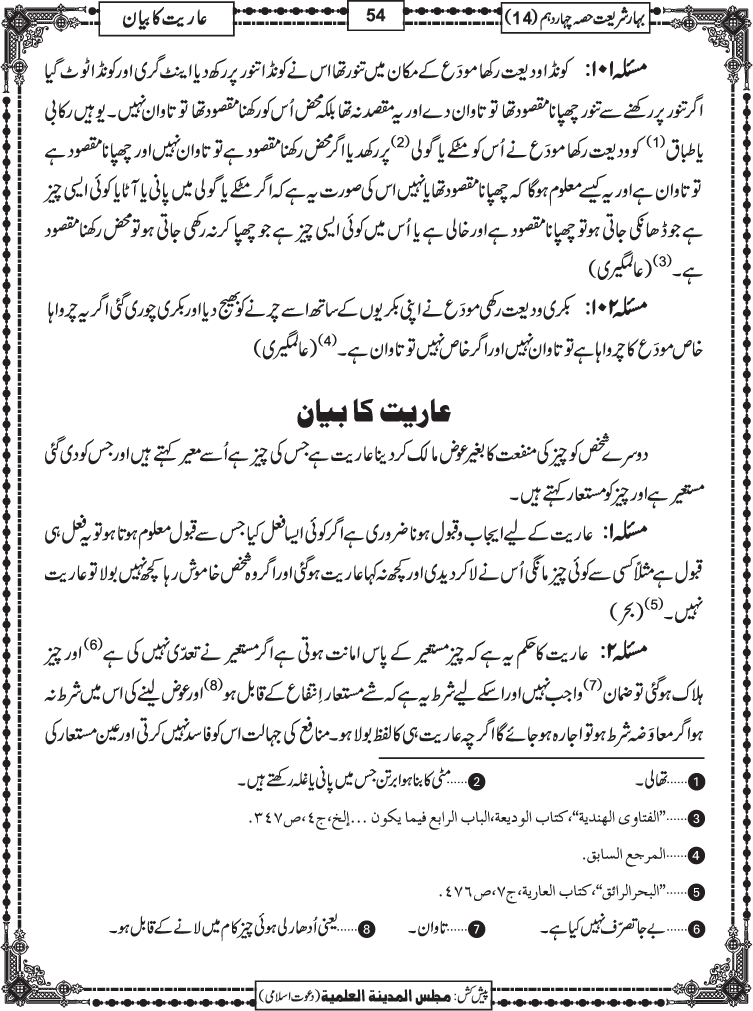 بہارِ شریعت حصہ چہاردہم (14)
54
عاریت کا بیان
مسئلہ ۱۰۱: کونڈا ودیعت رکھا مودَع کے مکان میں تنور تھا اس نے کونڈا تنور پر رکھ دیا اینٹ گری اور کونڈا ٹوٹ گیا
اگر تنور پر رکھنے سے تنور چھپانا مقصود تھا تو تاوان دے اور یہ مقصد نہ تھا بلکہ محض اُس کو رکھنا مقصود تھا تو تاوان نہیں۔ یوہیں رکابی
یا طباق (1) کو ودیعت رکھا مودَع نے اُس کو مٹکے یا گولی (2) پر رکھ دیا اگر محض رکھنا مقصود ہے تو تاوان نہیں اور چھپانا مقصود ہے
تو تاوان ہے اور یہ کیسے معلوم ہوگا کہ چھپانا مقصود تھا یا نہیں اس کی صورت یہ ہے کہ اگر مٹکے یا گولی میں پانی یا آٹا یا کوئی ایسی چیز
ہے جو ڈھانکی جاتی ہو تو چھپانا مقصود ہے اور خالی ہے یا اُس میں کوئی ایسی چیز ہے جو چھپا کر نہ رکھی جاتی ہو تو محض رکھنا مقصود
ہے۔(3) (عالمگیری)
مسئلہ ۱۰۲: بکری ودیعت رکھی مودَع نے اپنی بکریوں کے ساتھ اسے چرنے کو بھیج دیا اور بکری چوری گئی اگر یہ چرواہا
خاص مودَع کا چرواہا ہے تو تاوان نہیں اور اگر خاص نہیں تو تاوان ہے۔(4) (عالمگیری)
عاریت کا بیان
دوسرے شخص کو چیز کی منفعت کا بغیر عوض مالک کر دینا عاریت ہے جس کی چیز ہے اُسے معیر کہتے ہیں اور جس کو دی گئی
مستعیر ہے اور چیز کو مستعار کہتے ہیں۔
مسئلہ ۱: عاریت کے لیے ایجاب و قبول ہونا ضروری ہے اگر کوئی ایسا فعل کیا جس سے قبول معلوم ہوتا ہو تو یہ فعل ہی
قبول ہے مثلاً کسی سے کوئی چیز مانگی اُس نے لا کر دیدی اور کچھ نہ کہا عاریت ہوگئی اور اگر وہ شخص خاموش رہا کچھ نہیں بولا تو عاریت
نہیں۔(5) (بحر)
مسئلہ ۲: عاریت کا حکم یہ ہے کہ چیز مستعیر کے پاس امانت ہوتی ہے اگر مستعیر نے تعدّی نہیں کی ہے(6) اور چیز
ہلاک ہوگئی تو ضمان (7) واجب نہیں اور اسکے لیے شرط یہ ہے کہ شے مستعار اِنتفاع کے قابل ہو(8) اور عوض لینے کی اس میں شرط نہ
ہو اگر معاوَضہ شرط ہو تو اجارہ ہو جائے گا اگرچہ عاریت ہی کا لفظ بولا ہو۔ منافع کی جہالت اس کو فاسد نہیں کرتی اور عین مستعار کی
1 ......تھالی۔ 2 ......مٹی کا بنا ہوا برتن جس میں پانی یا غلہ رکھتے ہیں۔
3 ......”الفتاوی الهندية“، کتاب الوديعة،الباب الرابع فيما يكون ...إلخ،ج٤،ص٣٤٧.
4 ......المرجع السابق.
5 ......”البحر الرائق“، کتاب العارية،ج٧،ص٤٧٦.
6 ......بے جا تصرّف نہیں کیا ہے۔ 7 ......تاوان۔ 8 ......یعنی اُدھار لی ہوئی چیز کام میں لانے کے قابل ہو۔
پیش کش: مجلس المدینۃ العلمیۃ (دعوت اسلامی)